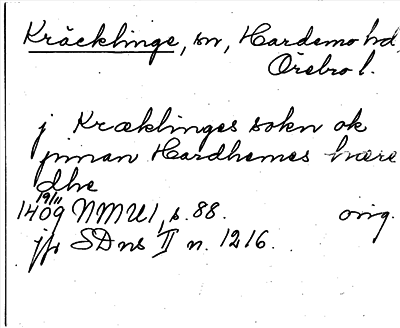 Kräcklinge, sn, Hardemo hd,
Örebro l.
j Kræklinges sokn ok
jnnan Hardhemes hære
dhe
19/11
1409 NMU 1, s. 88. orig.
jfr SDns II n. 1216.